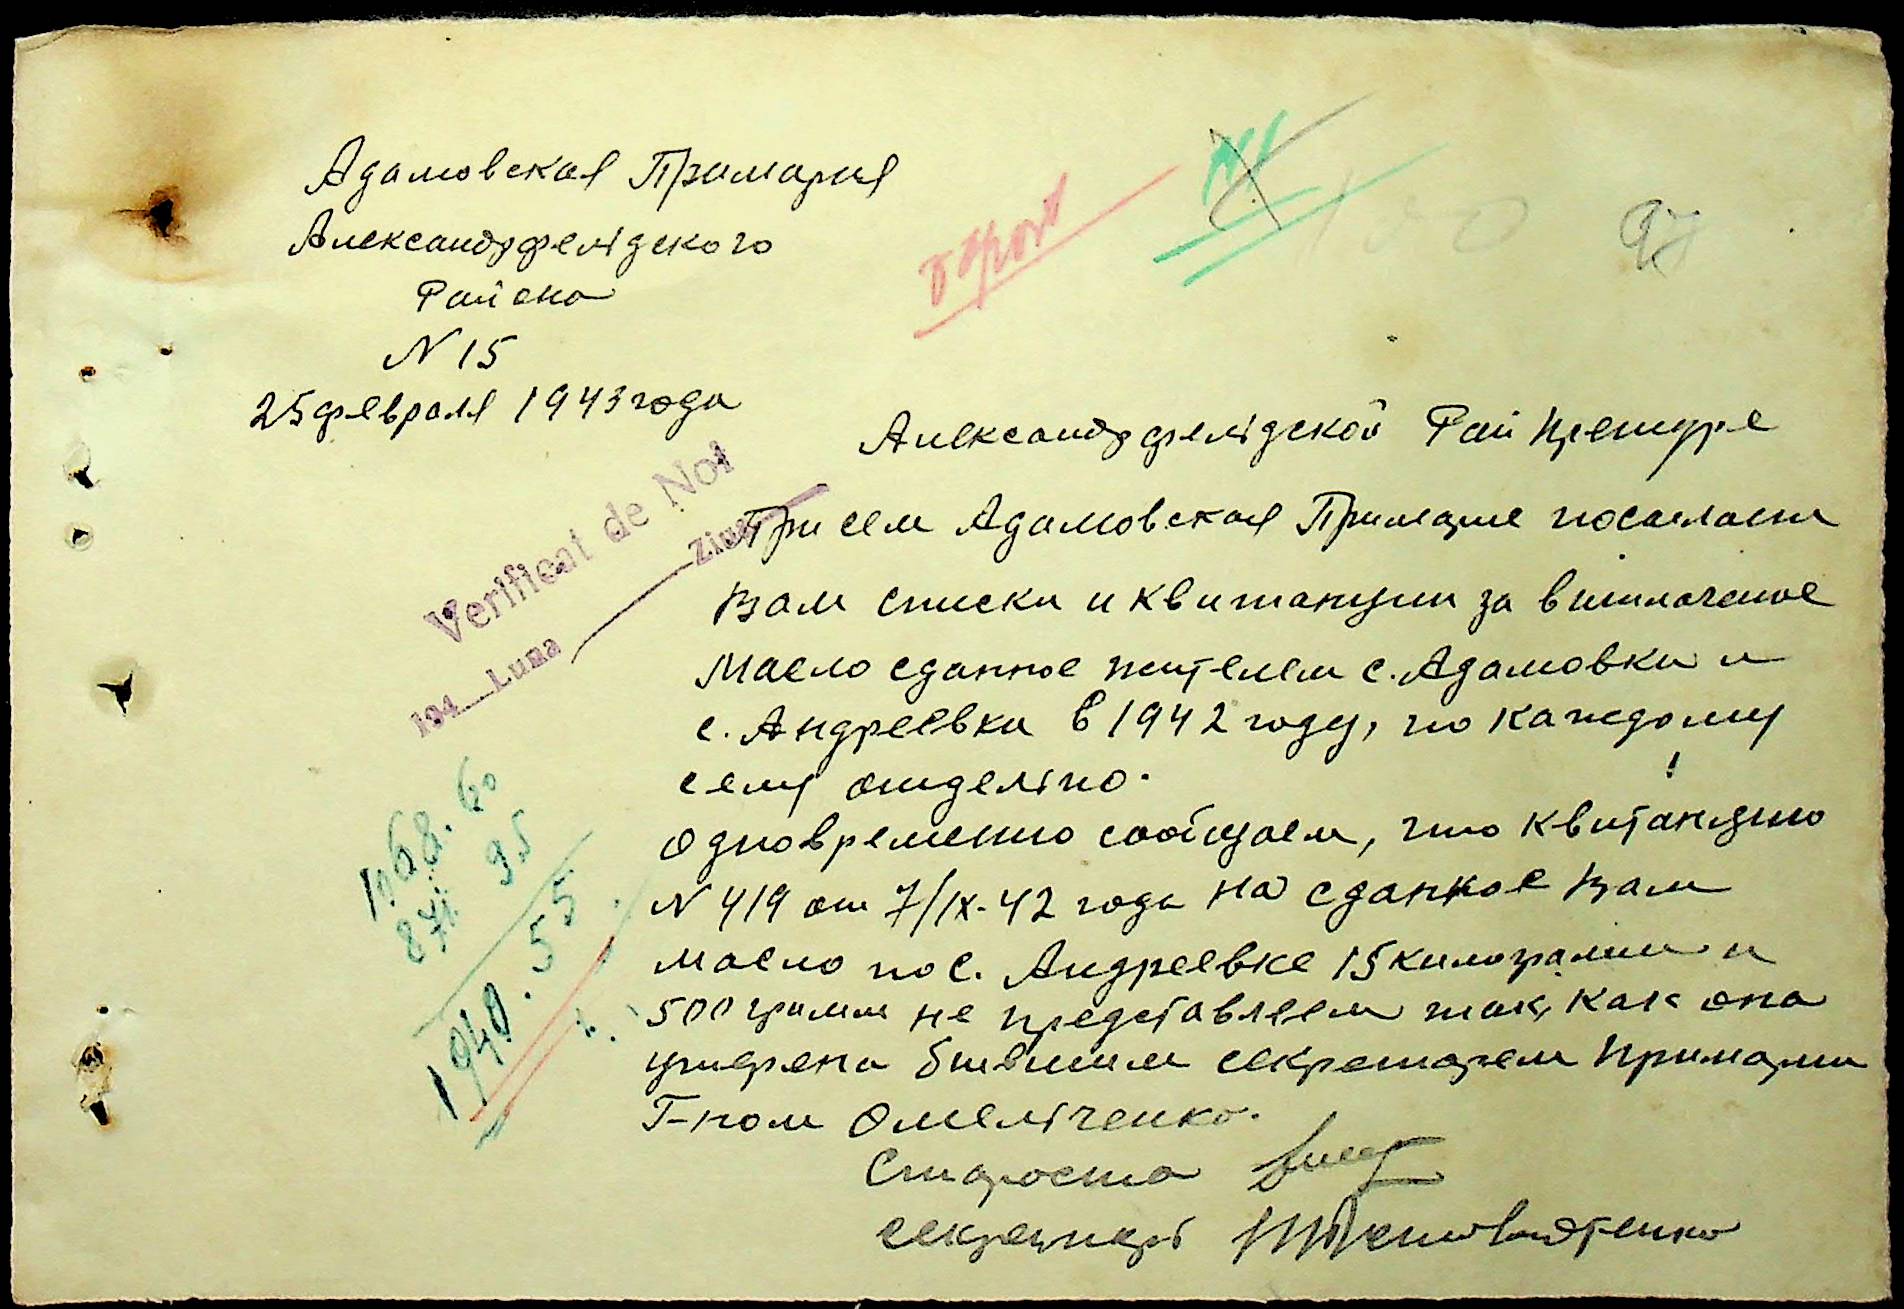 Адамовская Примария
Александрфельдского
Района
N 15
25 февраля 1943 года
97
Александрфельдской Рай претуре
Verificat de Noi
194 Luna Ziua
При сем Адамовская Примария посылает
Вам списки и квитанции за выплаченое
Масло сданное жителем с. Адамовки и
с. Андреевки в 1942 году, по каждому
селу отдельно.
Одновременно сообщаем, что квитанцию
N 419 от 7/IX-42 года на сданное Вам
масло по с. Андреевке 15 килограмм и
500 грамм не представляем так, как она
утеряна бывшим секретарем примарии
Г-ном Омельченко.
1068.60
871 95
1940.55
Староста
секретарь